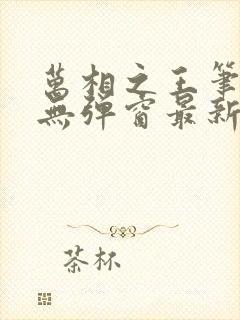 萬相之王筆
無彈窗最新
茶杯